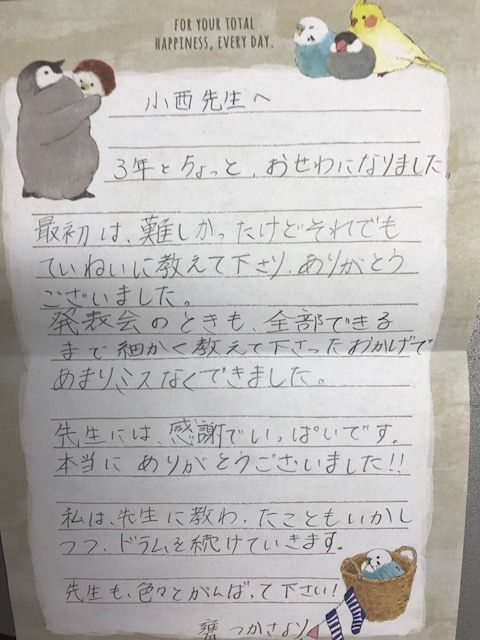 FOR YOUR TOTAL
HAPPINESS, EVERY DAY.
小西先生へ
3年とちょっと、おせわになりました。
最初は、難しかったけどそれでも
ていねいに教えて下さり、ありがとう
ございました。
発表会のときも、全部できる
まで細かく教えて下さったおかげで
あまりミスなくできました。
先生には、感謝でいっぱいです。
本当にありがとうございました!!
私は、先生に教わったこともいかし
つつ、ドラムを続けていきます。
先生も、色々とがんばって下さい!
つかさより